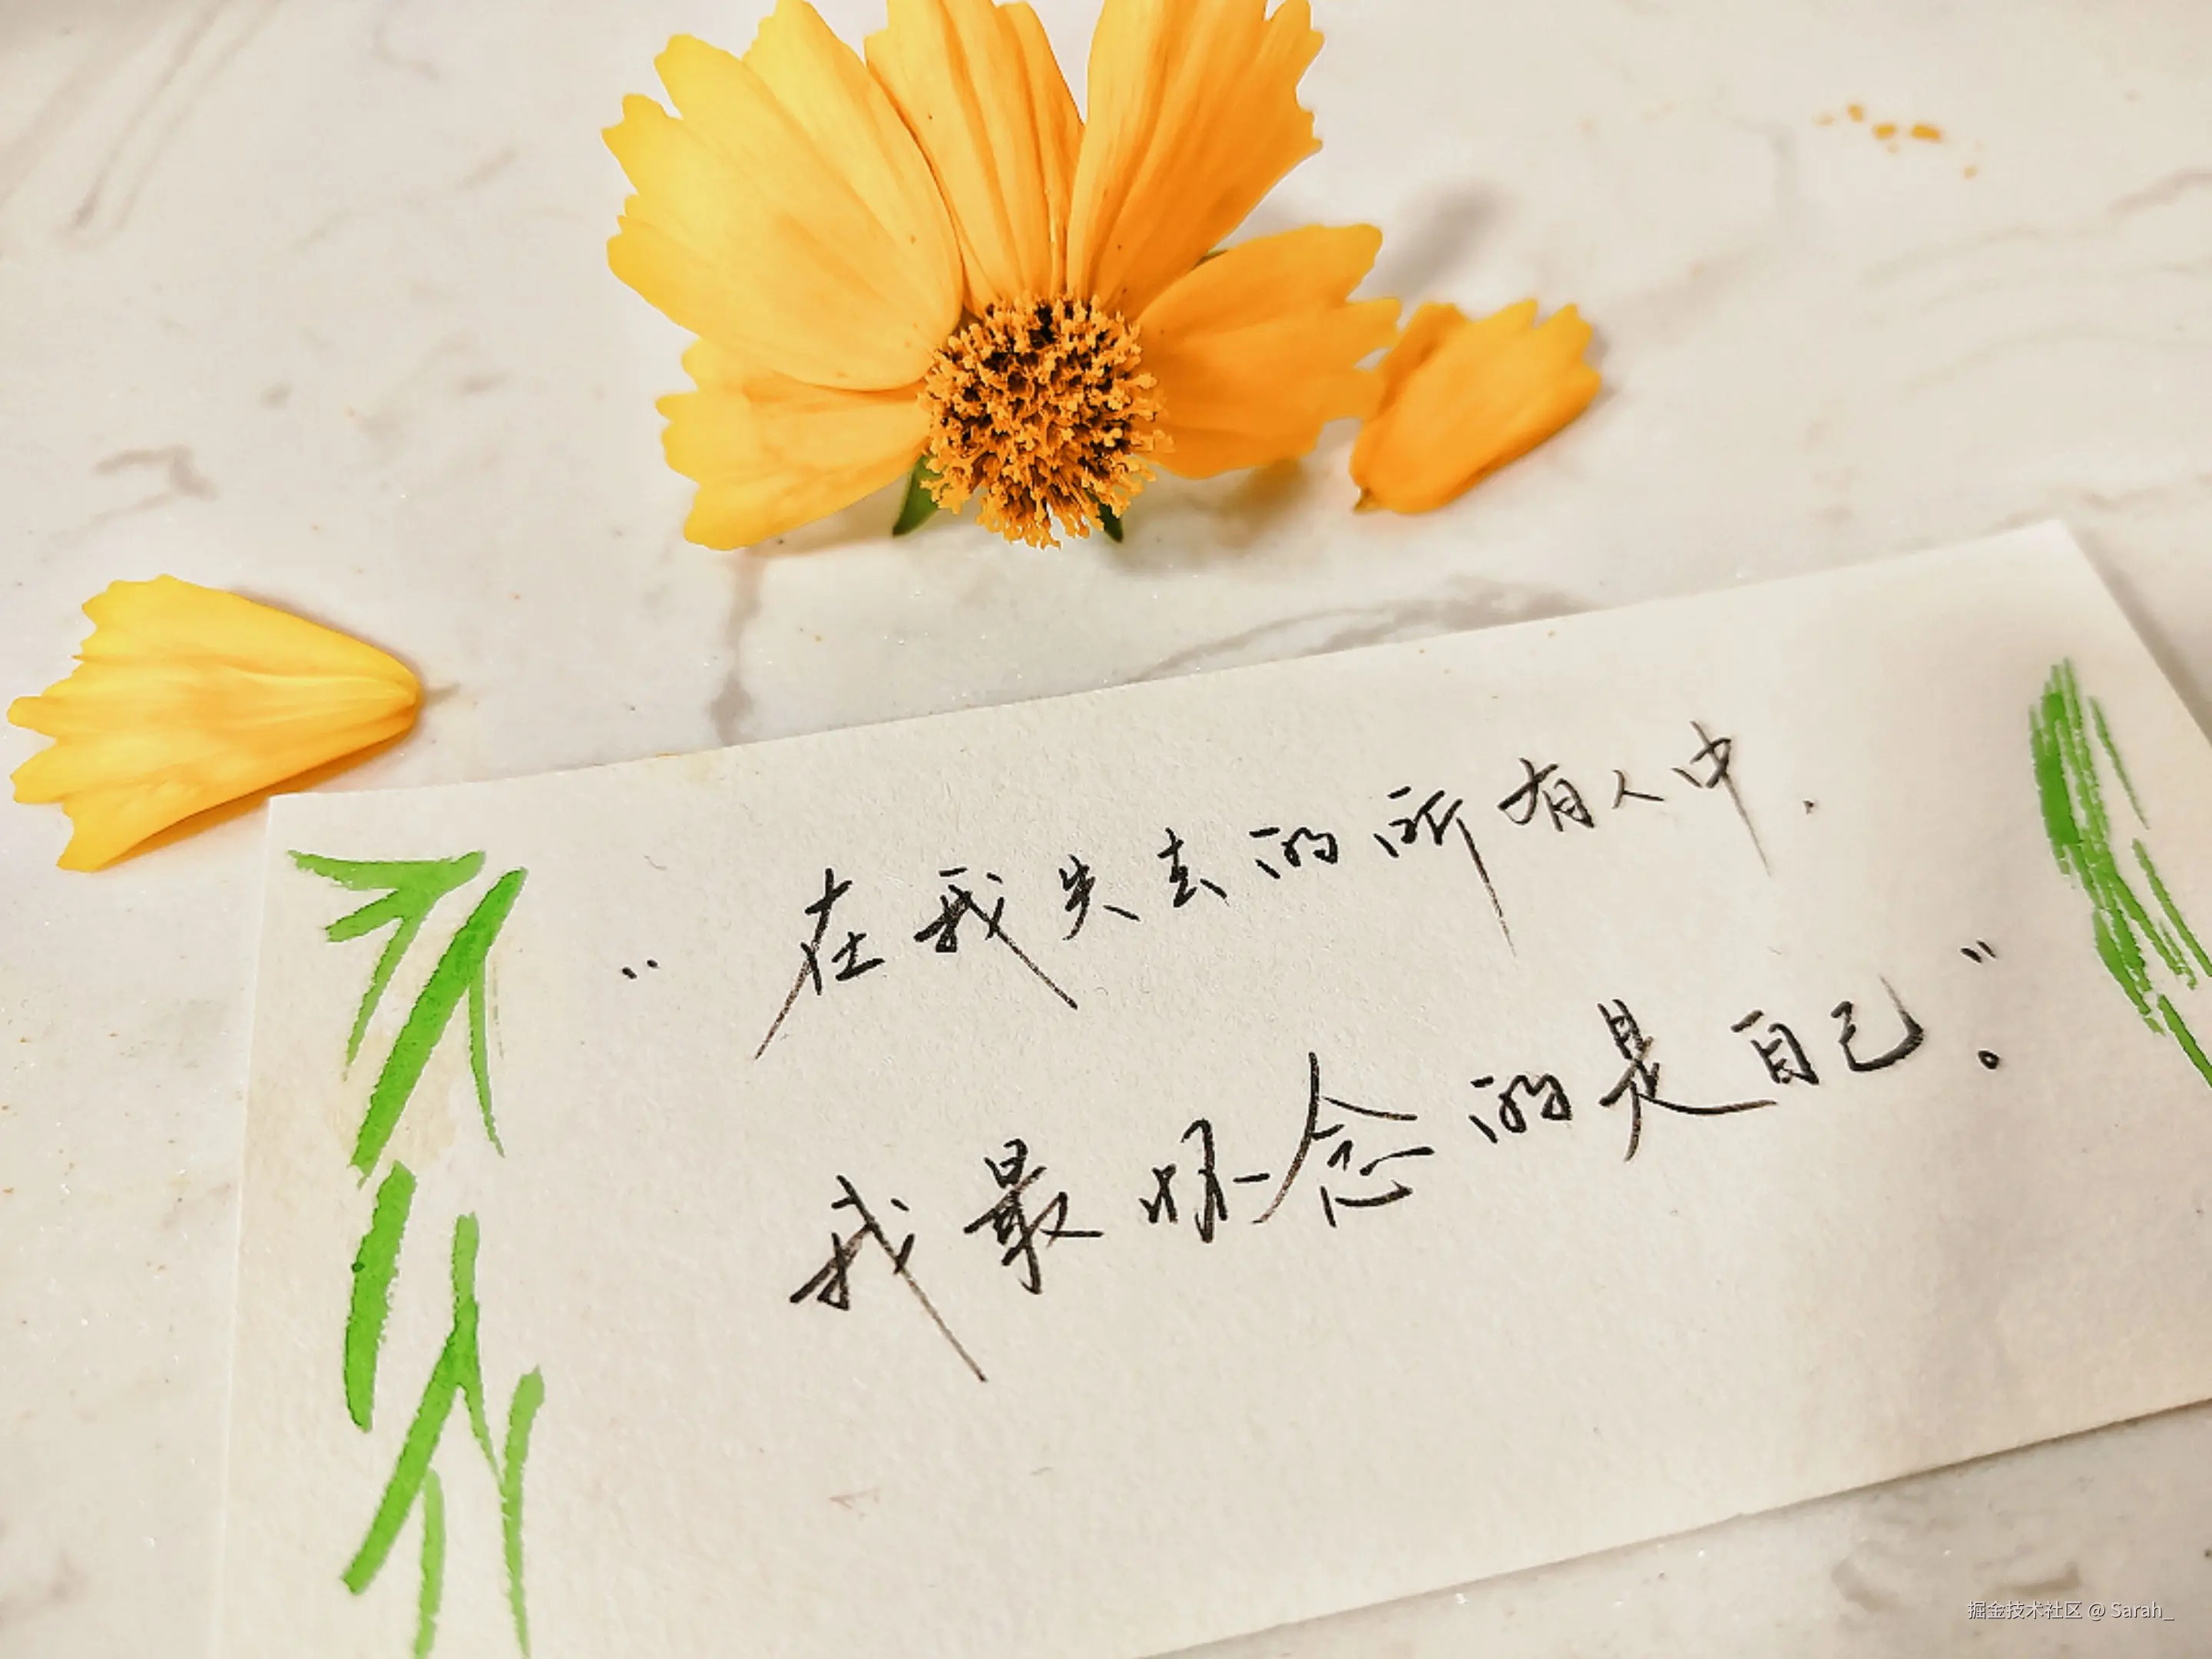 “在我失去的所有人中，
我最怀念的是自己”。
掘金技术社区 @ Sarah_